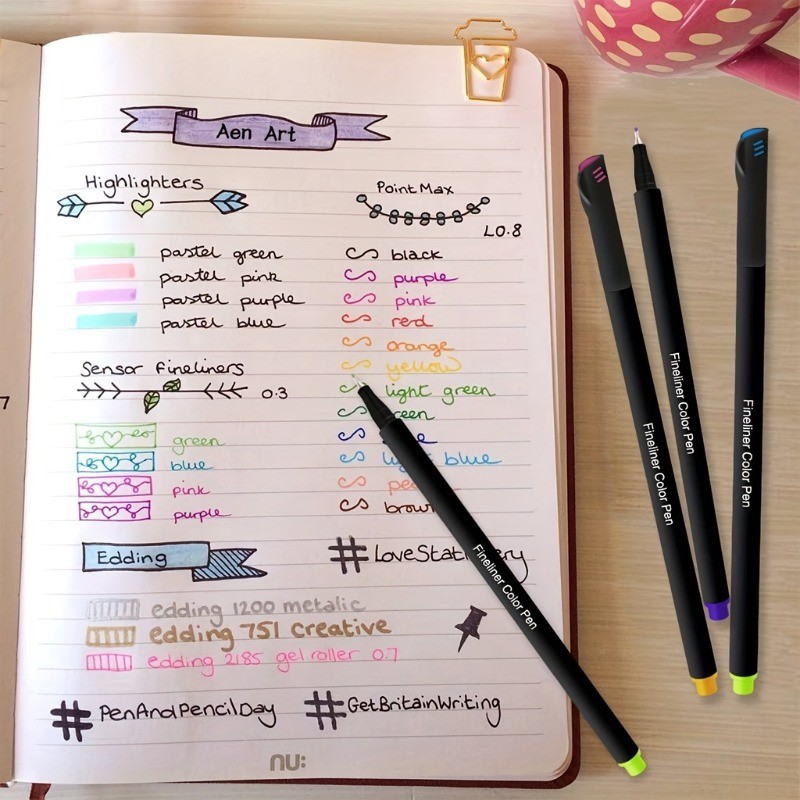 Aen Art
Highlighters
pastel green
pastel pink
pastel purple
pastel blue
Sensor Fineliners
0.3
green
blue
pink
purple
Edding
edding 1200 metalic
edding 751 creative
edding 2185 gel roller 0.7
#PenAndPencilDay
PointMax
L0.8
black
purple
pink
red
orange
yellow
light green
blue
brown
#LoveStationery
#GetBritainWriting
nu:
7
Fineliner Color Pen
Fineliner Color Pen
Fineliner Color Pen
Fineliner Color Pen